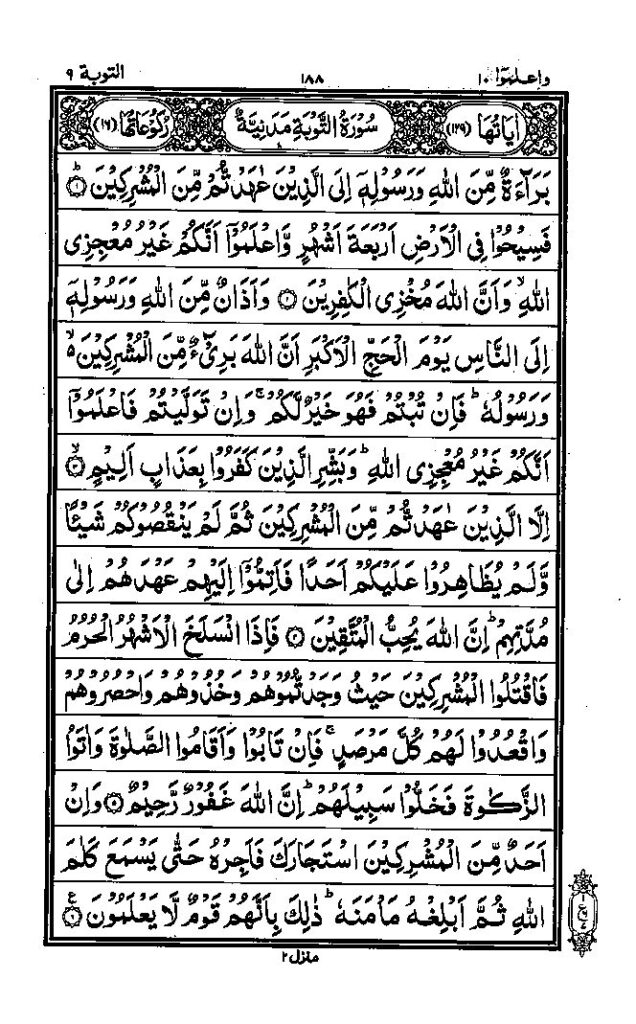 واعلموۤا ١٠ ١٨٨ التوبة ٩
اٰيَاتُهَا (١٢٩) سُوْرَةُ التَّوْبَةِ مَدَنِيَّةٌ رُكُوْعَاتُهَا (١٦)
بَرَآءَةٌ مِّنَ اللّٰهِ وَرَسُوْلِهٖۤ اِلَى الَّذِيْنَ عٰهَدْتُّمْ مِّنَ الْمُشْرِكِيْنَ ؕ﴿١﴾
فَسِيْحُوْا فِى الْاَرْضِ اَرْبَعَةَ اَشْهُرٍ وَّاعْلَمُوْۤا اَنَّكُمْ غَيْرُ مُعْجِزِى
اللّٰهِ ۙ وَاَنَّ اللّٰهَ مُخْزِى الْكٰفِرِيْنَ ﴿٢﴾ وَاَذَانٌ مِّنَ اللّٰهِ وَرَسُوْلِهٖۤ
اِلَى النَّاسِ يَوْمَ الْحَجِّ الْاَكْبَرِ اَنَّ اللّٰهَ بَرِىْٓءٌ مِّنَ الْمُشْرِكِيْنَ ۙ۬
وَرَسُوْلُهٗ ؕ فَاِنْ تُبْتُمْ فَهُوَ خَيْرٌ لَّكُمْ ۚ وَاِنْ تَوَلَّيْتُمْ فَاعْلَمُوْۤا
اَنَّكُمْ غَيْرُ مُعْجِزِى اللّٰهِ ؕ وَبَشِّرِ الَّذِيْنَ كَفَرُوْا بِعَذَابٍ اَلِيْمٍ ۙ﴿٣﴾
اِلَّا الَّذِيْنَ عٰهَدْتُّمْ مِّنَ الْمُشْرِكِيْنَ ثُمَّ لَمْ يَنْقُصُوْكُمْ شَيْـًٔا
وَّلَمْ يُظَاهِرُوْا عَلَيْكُمْ اَحَدًا فَاَتِمُّوْۤا اِلَيْهِمْ عَهْدَهُمْ اِلٰى
مُدَّتِهِمْ ؕ اِنَّ اللّٰهَ يُحِبُّ الْمُتَّقِيْنَ ﴿٤﴾ فَاِذَا انْسَلَخَ الْاَشْهُرُ الْحُرُمُ
فَاقْتُلُوا الْمُشْرِكِيْنَ حَيْثُ وَجَدْتُّمُوْهُمْ وَخُذُوْهُمْ وَاحْصُرُوْهُمْ
وَاقْعُدُوْا لَهُمْ كُلَّ مَرْصَدٍ ۚ فَاِنْ تَابُوْا وَاَقَامُوا الصَّلٰوةَ وَاٰتَوُا
الزَّكٰوةَ فَخَلُّوْا سَبِيْلَهُمْ ؕ اِنَّ اللّٰهَ غَفُوْرٌ رَّحِيْمٌ ﴿٥﴾ وَاِنْ
اَحَدٌ مِّنَ الْمُشْرِكِيْنَ اسْتَجَارَكَ فَاَجِرْهُ حَتّٰى يَسْمَعَ كَلٰمَ
اللّٰهِ ثُمَّ اَبْلِغْهُ مَاْمَنَهٗ ؕ ذٰلِكَ بِاَنَّهُمْ قَوْمٌ لَّا يَعْلَمُوْنَ ﴿٦﴾ ع
منزل ٢